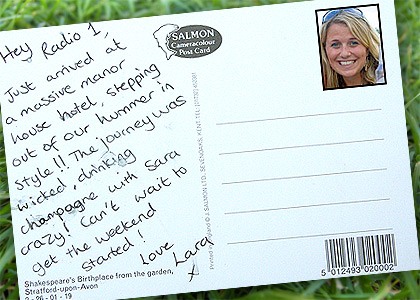 Hey Radio 1,
Just arrived at
a massive manor
house hotel, stepping
out of our hummer in
style!! The journey was
wicked, drinking
champagne with Sara
crazy! Can't wait to
get the weekend
started!
Love
Lara
X
SALMON
Cameracolour
Post Card
Printed in England © J. SALMON LTD., SEVENOAKS, KENT. TEL:
Shakespeare's Birthplace from the garden,
Stratford-upon-Avon
2 - 26 - 01 - 19
5 012493 020002 >